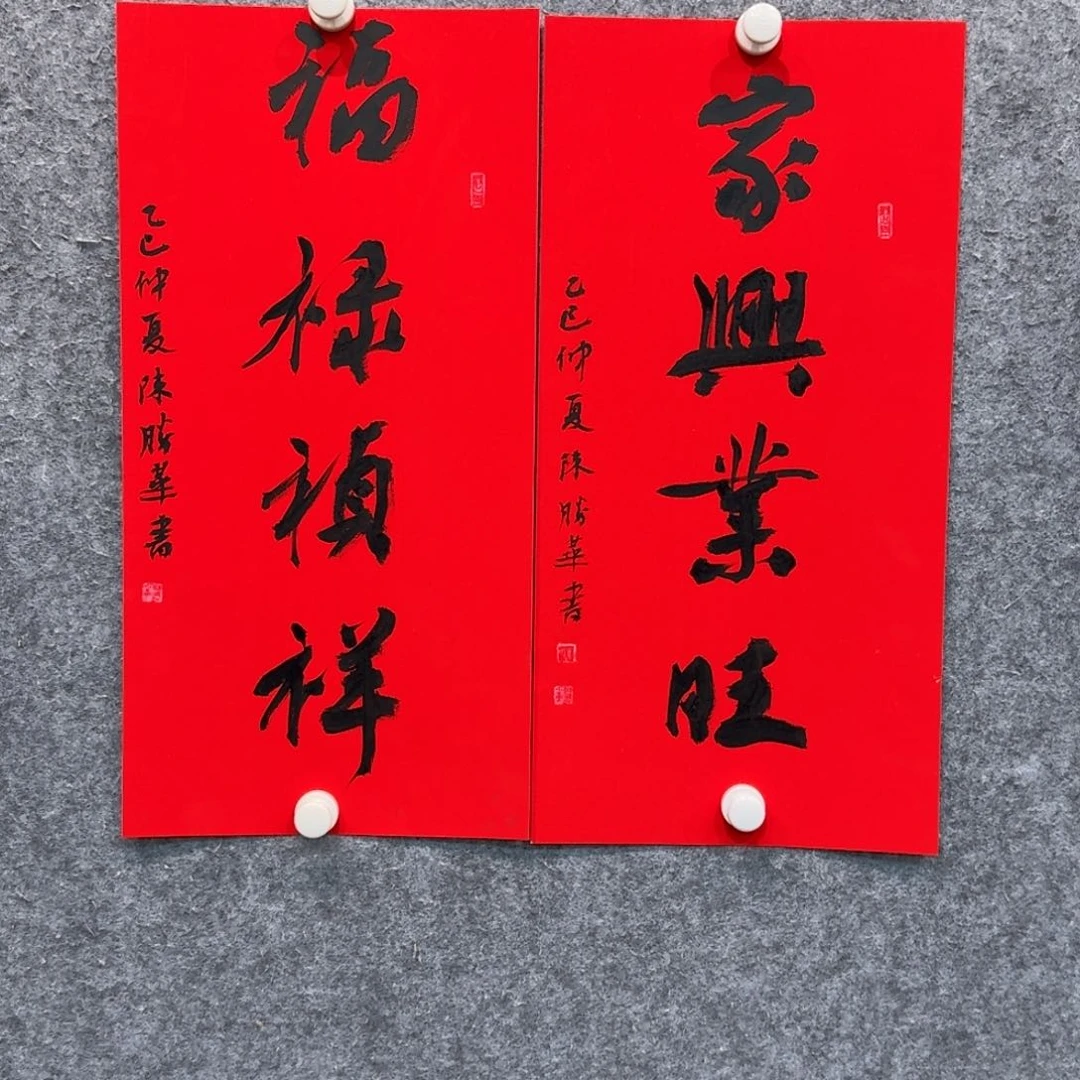 家興業旺
乙巳仲夏陳勝華書
福禄禎祥
乙巳仲夏陳勝華書